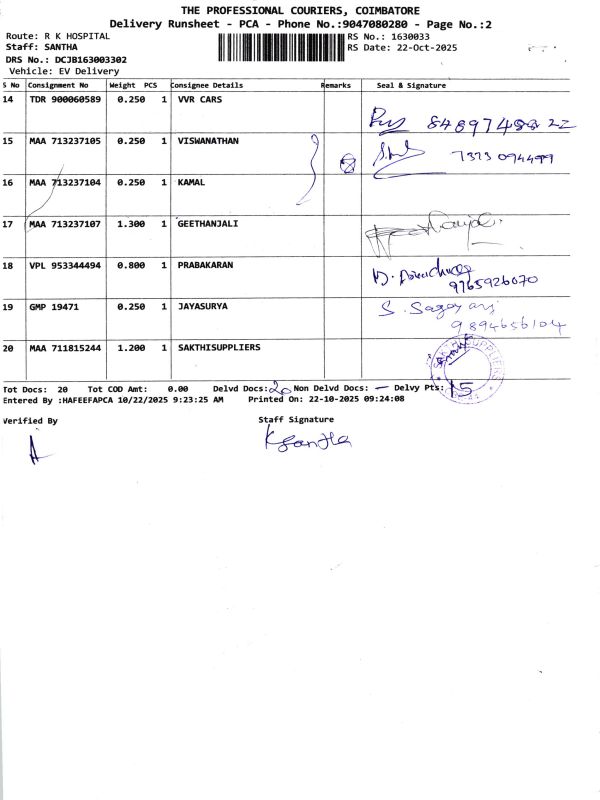 THE PROFESSIONAL COURIERS, COIMBATORE
Delivery Runsheet - PCA - Phone No.:9047080280 - Page No.:2
Route: R K HOSPITAL RS No.: 1630033
Staff: SANTHA RS Date: 22-Oct-2025
DRS No.: DCJB163003302
Vehicle: EV Delivery
S No Consignment No Weight PCS Consignee Details Remarks Seal & Signature
14 TDR 900060589 0.250 1 VVR CARS
15 MAA 713237105 0.250 1 VISWANATHAN
7373 094499
16 MAA 713237104 0.250 1 KAMAL
17 MAA 713237107 1.300 1 GEETHANJALI
18 VPL 953344494 0.800 1 PRABAKARAN
9765926070
19 GMP 19471 0.250 1 JAYASURYA S. Sagayaraj
9894656104
20 MAA 711815244 1.200 1 SAKTHISUPPLIERS
Tot Docs: 20 Tot COD Amt: 0.00 Delvd Docs: 20 Non Delvd Docs: — Delvy Pts: 15
Entered By :HAFEEFAPCA 10/22/2025 9:23:25 AM Printed On: 22-10-2025 09:24:08
Verified By Staff Signature
K Santha